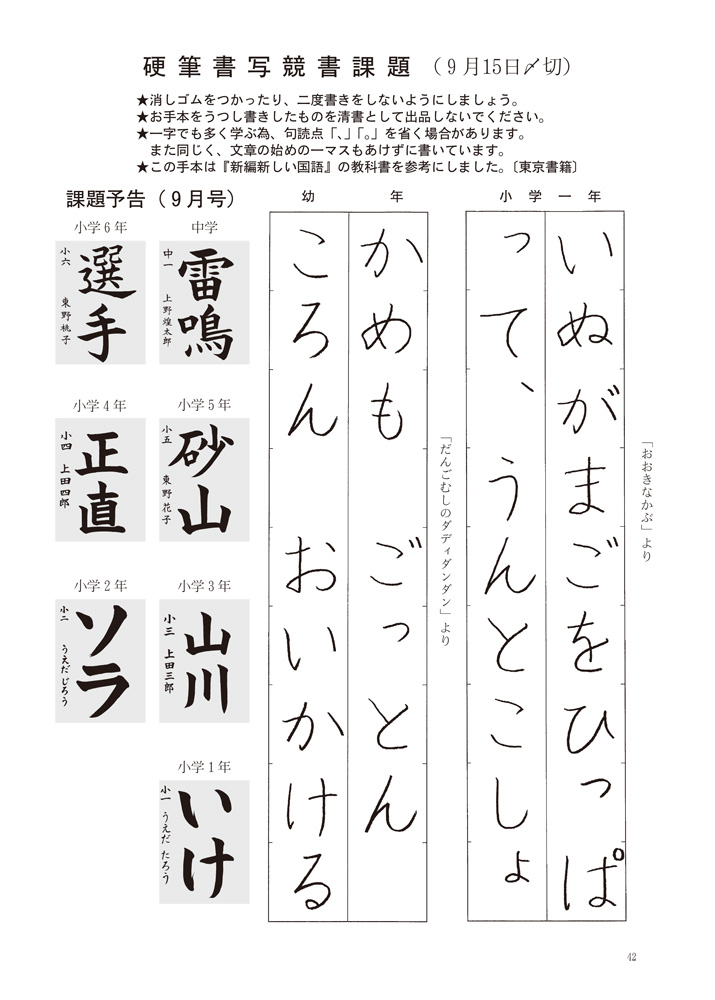 硬筆書写競書課題（９月15日〆切）
★消しゴムをつかったり、二度書きをしないようにしましょう。
★お手本をうつし書きしたものを清書として出品しないでください。
★一字でも多く学ぶ為、句読点「、」「。」を省く場合があります。
また同じく、文章の始めの一マスもあけずに書いています。
★この手本は『新編新しい国語』の教科書を参考にしました。〔東京書籍〕
小学一年
いぬがまごをひっぱ
って、うんとこしょ
「おおきなかぶ」より
幼年
かめも ごっとん
ころん おいかける
「だんごむしのダディダンダン」より
課題予告（９月号）
中学
雷鳴
中一 上野煌太郎
小学６年
選手
小六 東野桃子
小学５年
砂山
小五 東野花子
小学４年
正直
小四 上田四郎
小学３年
山川
小三 上田三郎
小学２年
ソラ
小二 うえだじろう
小学１年
いけ
小一 うえだ たろう
42